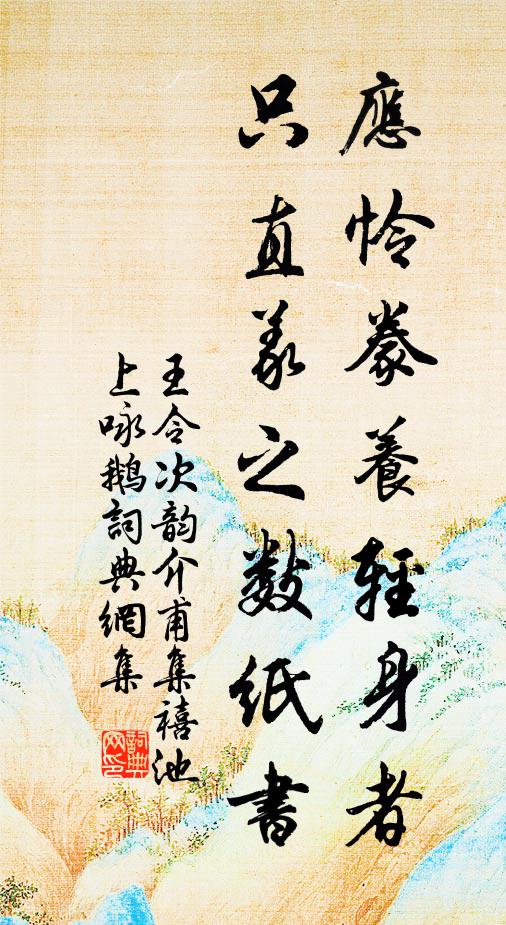 應怜豢養輕身者
只直羲之數紙書
王令次韵介甫集禧池
上咏鵝詞典網集
詞典
网印